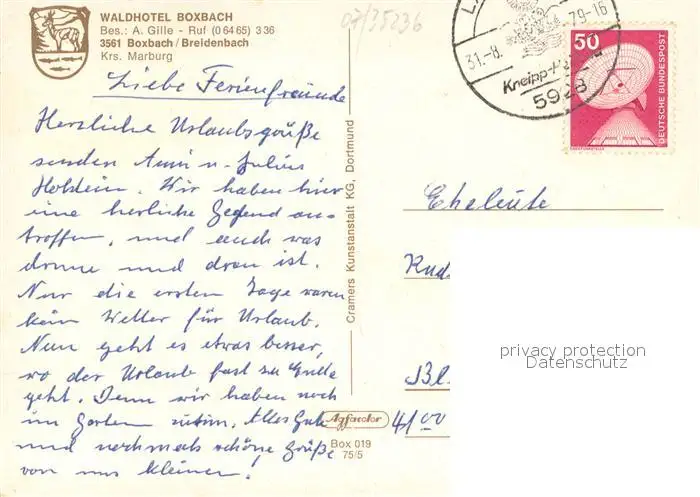 WALDHOTEL BOXBACH
Bes.: A. Gille - Ruf (0 64 65) 3 36
3561 Boxbach / Breidenbach
Krs. Marburg
07/35236
Liebe Ferienfreunde
Herzliche Urlaubsgrüße
senden Anni u. Julius
Holstein. Wir haben hier
eine herrliche Gegend an-
troffen, und auch was
drume und dran ist.
Nur die ersten Tage waren
kein Wetter für Urlaub.
Nun geht es etwas besser,
wo der Urlaub fast zu Ende
geht. Denn wir haben noch
im Garten Alles Gute
und nochmals schöne Grüße
von uns kleinen!
Cramers Kunstanstalt KG, Dortmund
Agfacolor
Box 019
75/5
31.-8.
79-16
Kneipp-
5928
50
DEUTSCHE BUNDESPOST
Eheleute
Rud
Bl.
41/00
privacy protection
Datenschutz